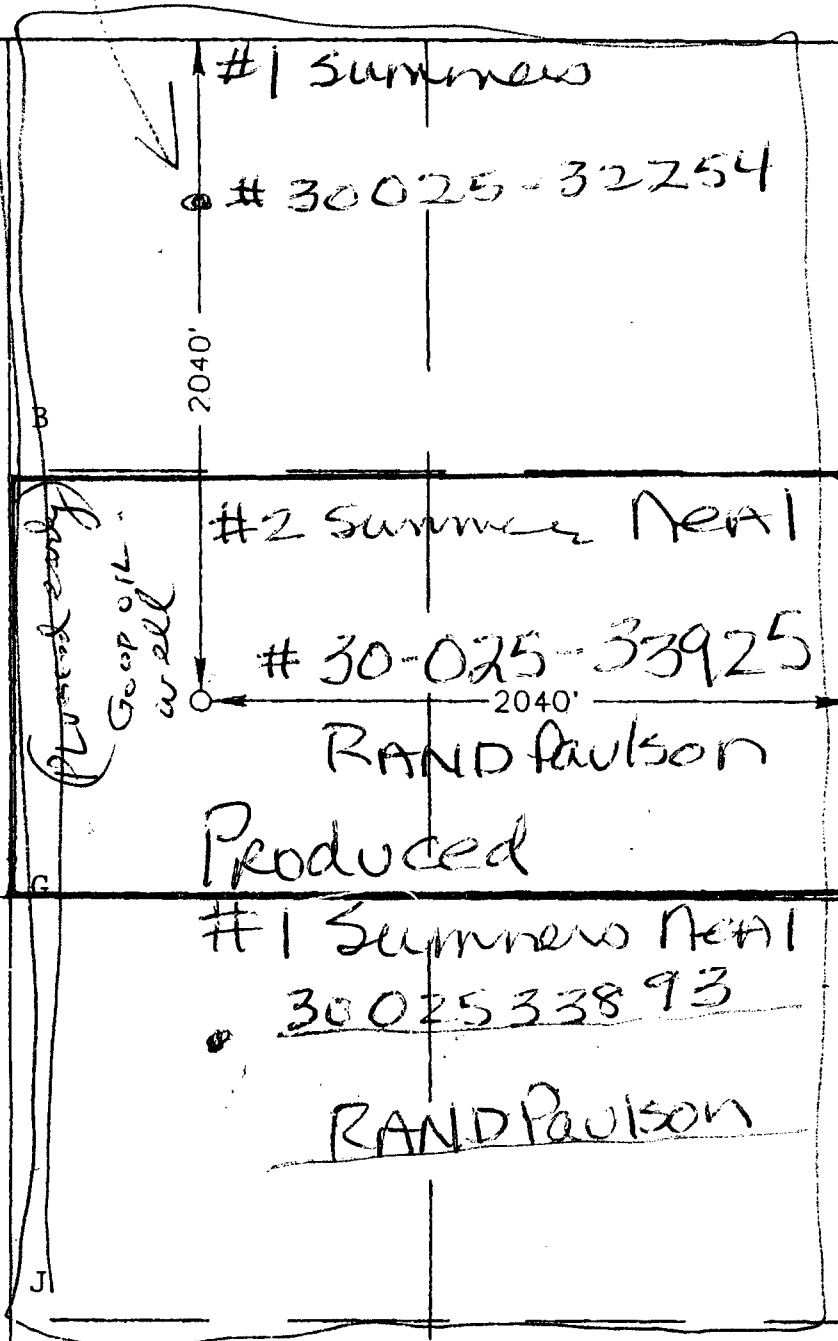 #1 Summers
# 30025-32254
2040'
B
#2 Summers Neal
Good oil
well
# 30-025-33925
2040'
RAND Paulson
Produced
G
#1 Summers Neal
3002533893
RAND Paulson
J